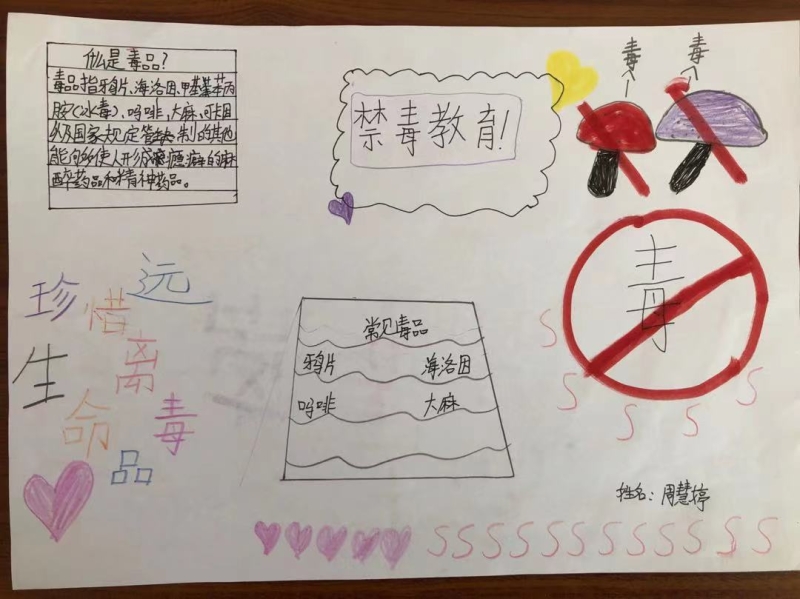 什么是毒品?
毒品指鸦片、海洛因、甲基苯丙
胺(冰毒)、吗啡、大麻、可卡因
以及国家规定管制的其他
能够使人形成瘾癖的麻
醉药品和精神药品。
禁毒教育!
毒
毒
毒
珍惜
生命
远离
毒品
常见毒品
鸦片 海洛因
吗啡 大麻
姓名:周慧婷
S
S S S S S
S S S S S S S S S S S S